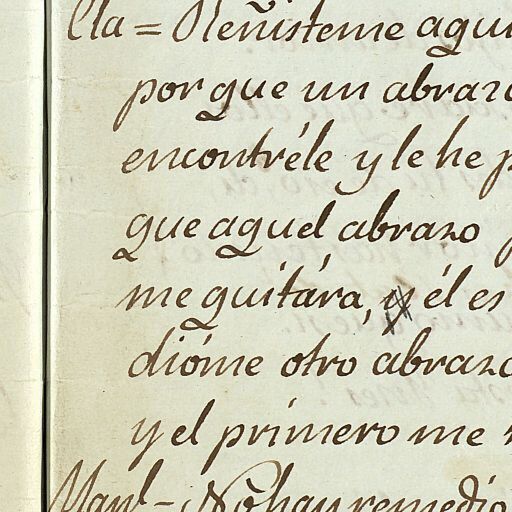 Cla = Reñisteme aqui
por que un abrazo
encontréle y le he p
que aquel abrazo
me quitára, y él es
dióme otro abrazo
y el primero me
Manl - No hay remedio